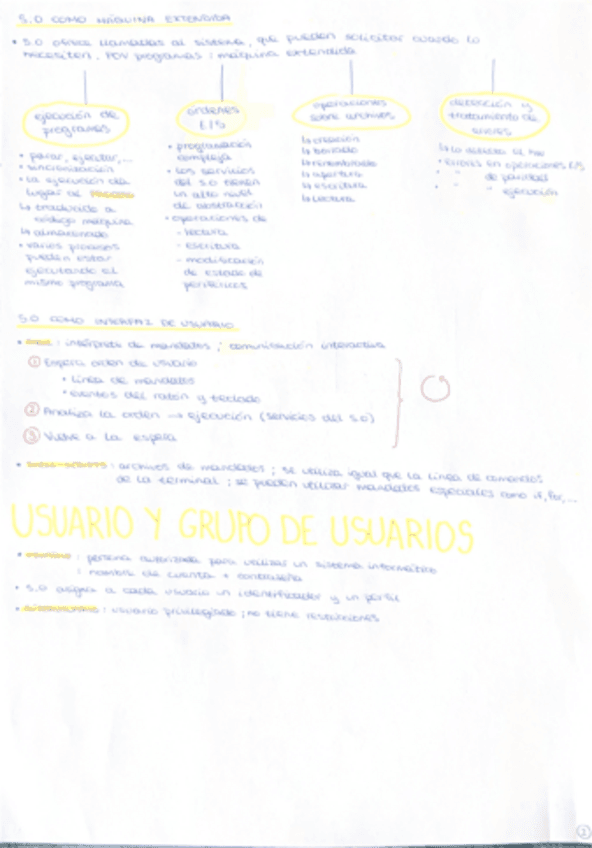 S.O COMO MÁQUINA EXTENDIDA
• S.O ofrece llamadas al sistema, que pueden solicitar cuando lo
necesiten. PDV programas: máquina extendida
ejecución de
programas
• parar, ejecutar,...
• sincronización
• la ejecución da
lugar al PROCESO
↳ traducido a
código máquina
↳ almacenado
• varios procesos
pueden estar
ejecutando el
mismo programa
órdenes
E/S
• programación
compleja
• los servicios
del S.O tienen
un alto nivel
de abstracción
• operaciones de
- lectura
- escritura
- modificación
de estado de
periféricos
operaciones
sobre archivos
↳ creación
↳ borrado
↳ renombrado
↳ apertura
↳ escritura
↳ lectura
detección y
tratamiento de
errores
↳ lo detecta el HW
• errores en operaciones E/S
• " " de paridad
• " " ejecución
S.O COMO INTERFAZ DE USUARIO
: intérprete de mandatos ; comunicación interactiva
① Espera orden de usuario
• línea de mandatos
• eventos del ratón y teclado
② Analiza la orden → ejecución (servicios del S.O)
③ Vuelve a la espera
: archivos de mandatos ; se utiliza igual que la línea de comandos
de la terminal ; se pueden utilizar mandatos especiales como if, for, ...
USUARIO Y GRUPO DE USUARIOS
• usuario : persona autorizada para utilizar un sistema informático
: nombre de cuenta + contraseña
• S.O asigna a cada usuario un identificador y un perfil
• superusuario : usuario privilegiado ; no tiene restricciones
2